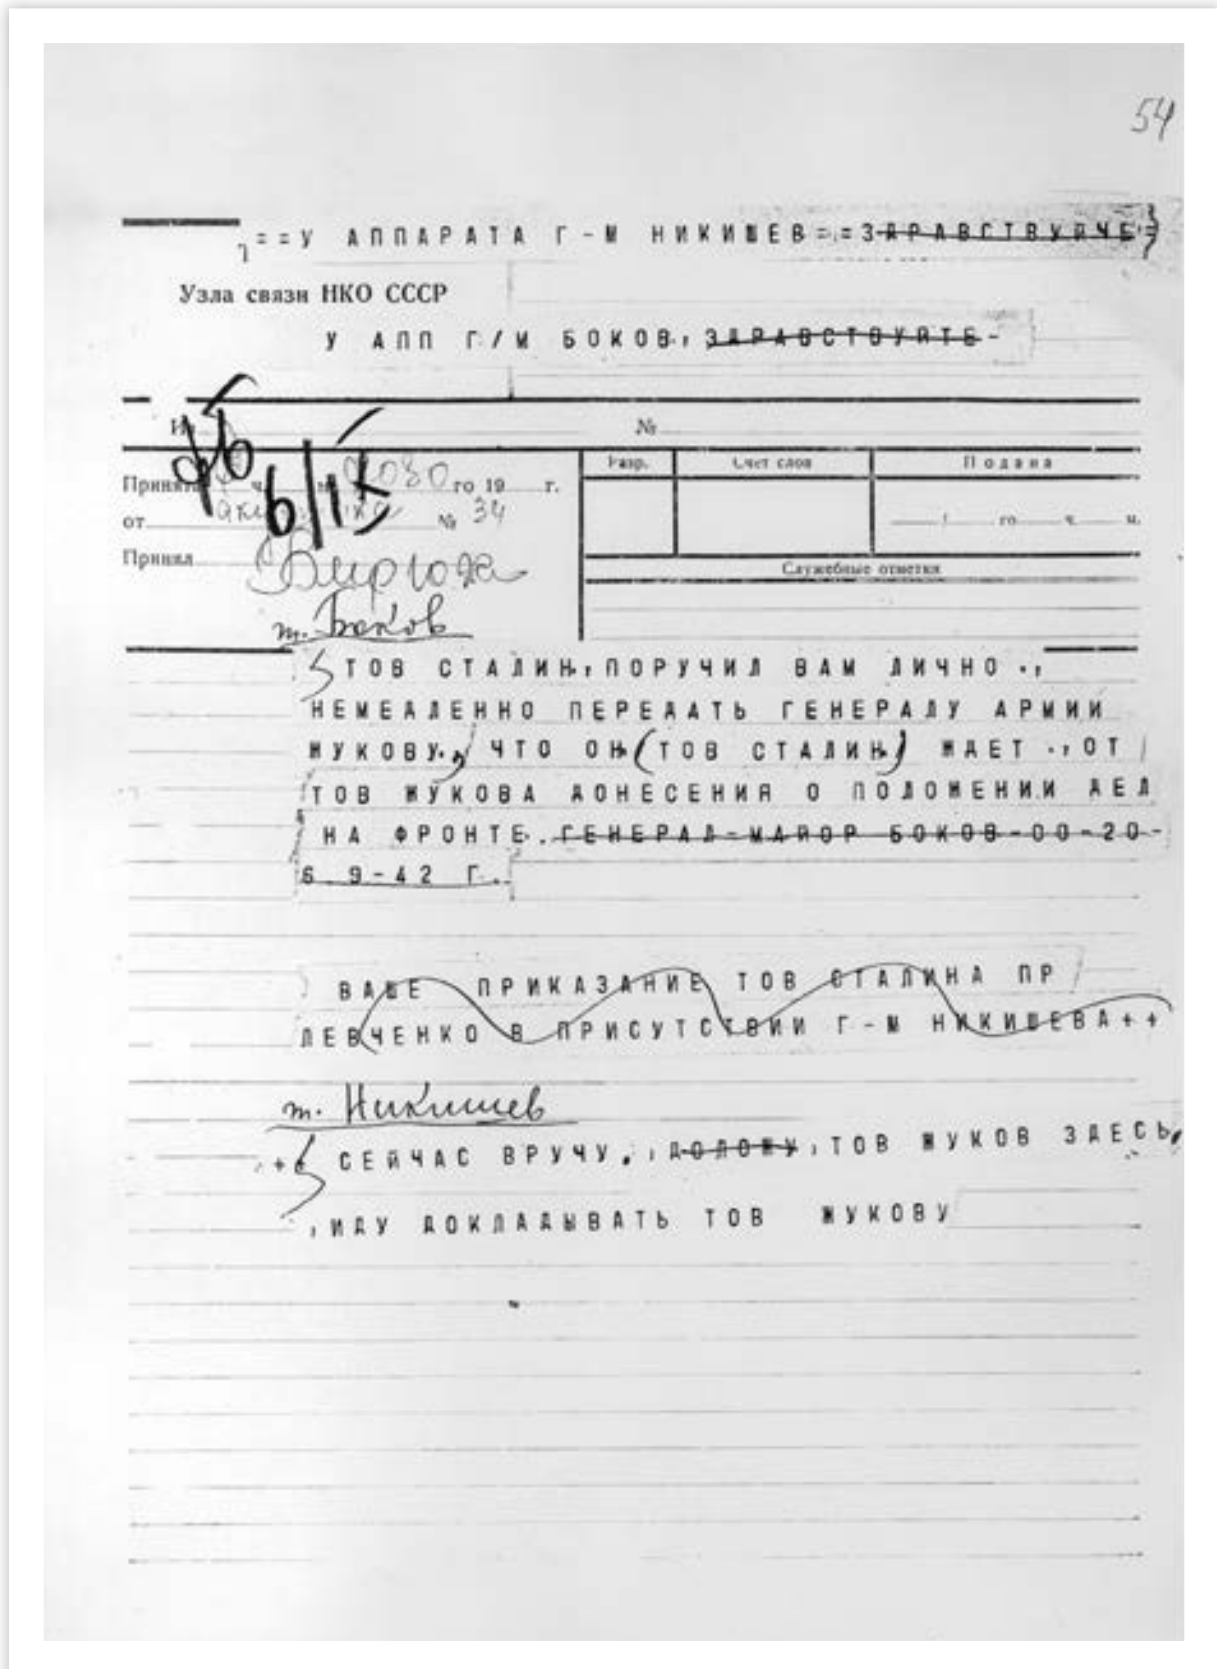 54
==У АППАРАТА Г-М НИКИШЕВ==ЗДРАВСТВУЙЧЕ
Узла связи НКО СССР
У АПП Г/М БОКОВ, ЗДРАВСТВУЙТЕ-
№
6/IX
Разр. Счет слов Подана
го 19 г.
от № 34
го ч. м.
Принял Бирюза
Служебные отметки
т. Боков
ТОВ СТАЛИН, ПОРУЧИЛ ВАМ ЛИЧНО .,
НЕМЕДЛЕННО ПЕРЕДАТЬ ГЕНЕРАЛУ АРМИИ
ЖУКОВУ., ЧТО ОН (ТОВ СТАЛИН) ЖДЕТ ., ОТ
ТОВ ЖУКОВА ДОНЕСЕНИЯ О ПОЛОЖЕНИИ ДЕЛ
НА ФРОНТЕ. ГЕНЕРАЛ-МАЙОР БОКОВ-00-20-
6 9-42 Г.
ВАШЕ ПРИКАЗАНИЕ ТОВ СТАЛИНА ПР
ЛЕВЧЕНКО В ПРИСУТСТВИИ Г-М НИКИШЕВА++
т. Никишев
++ СЕЙЧАС ВРУЧУ., ДОЛОЖУ, ТОВ ЖУКОВ ЗДЕСЬ,
, ИДУ ДОКЛАДЫВАТЬ ТОВ ЖУКОВУ